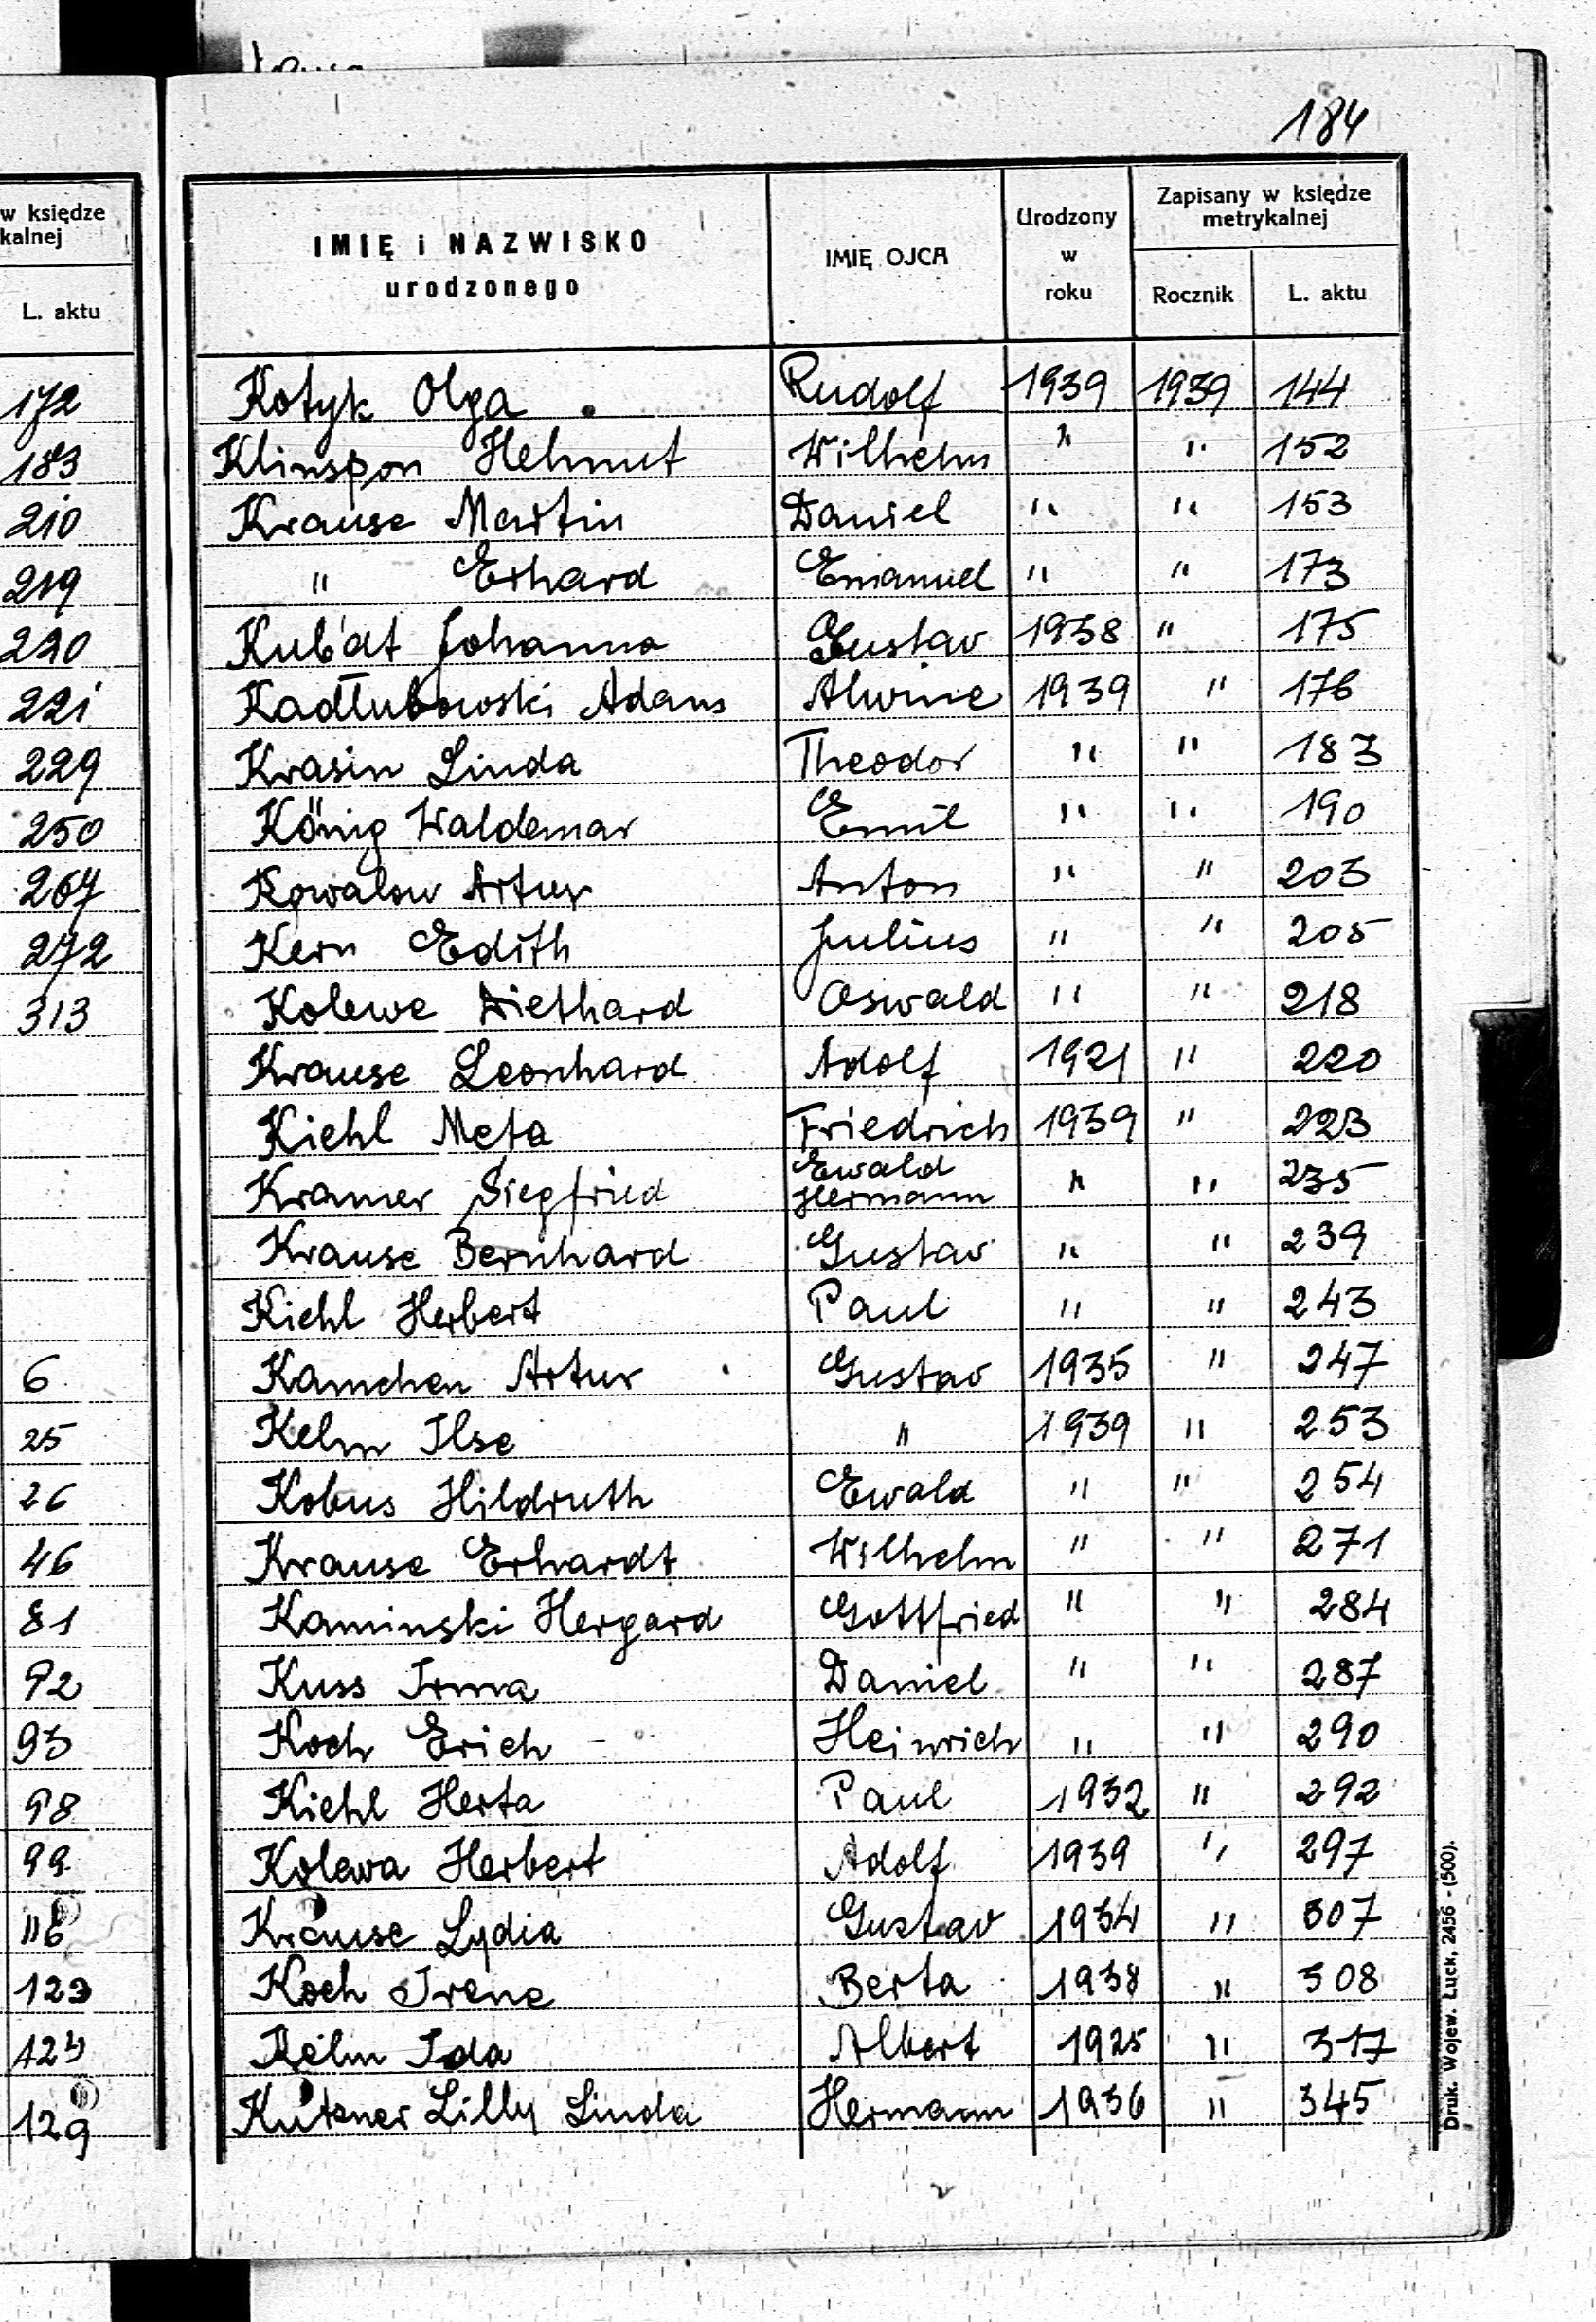 184
w księdze
kalnej
L. aktu
172
183
210
219
220
221
229
250
267
272
313
6
25
26
46
81
92
93
98
99
116
123
124
129
IMIĘ i NAZWISKO urodzonego | IMIĘ OJCA | Urodzony w roku | Zapisany w księdze metrykalnej
Rocznik | L. aktu
Kotyk Olga | Rudolf | 1939 | 1939 | 144
Klinspon Helmut | Wilhelm | " | " | 152
Krause Martin | Daniel | " | " | 153
" Erhard | Emanuel | " | " | 173
Kubát Johanna | Gustav | 1938 | " | 175
Kadłubowski Adam | Alwine | 1939 | " | 176
Krasin Linda | Theodor | " | " | 183
König Waldemar | Emil | " | " | 190
Kowalow Artur | Anton | " | " | 203
Kern Edith | Julius | " | " | 205
Kolewe Diethard | Oswald | " | " | 218
Krause Leonhard | Adolf | 1921 | " | 220
Kiehl Meta | Friedrich | 1939 | " | 223
Kramer Siegfried | Ewald Hermann | " | " | 235
Krause Bernhard | Gustav | " | " | 239
Kiehl Herbert | Paul | " | " | 243
Kamchen Artur | Gustav | 1935 | " | 247
Kelm Ilse | " | 1939 | " | 253
Kobus Hildruth | Ewald | " | " | 254
Krause Erhardt | Wilhelm | " | " | 271
Kaminski Hergard | Gottfried | " | " | 284
Kuss Irma | Daniel | " | " | 287
Koch Erich | Heinrich | " | " | 290
Kiehl Herta | Paul | 1932 | " | 292
Kolewa Herbert | Adolf | 1939 | " | 297
Krause Lydia | Gustav | 1934 | " | 307
Koch Irene | Berta | 1938 | " | 308
Kelm Ida | Albert | 1925 | " | 317
Kutzner Lilly Linda | Hermann | 1936 | " | 345
Druk. Wojew. Łuck, 2456 - (500).